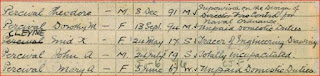 Percival Theodore - M 8 Dec 91 M Supervision on the Design of Director Fire Control for Naval Ordnance
Percival Dorothy M - F 13 Sept 94 M Unpaid Domestic Duties
CLEYNE
Enid F 21 May 17 S Tracer of Engineering Drawing
Percival John A - M 19 S Wholly incapacitated
Percival Mary A - F 5 June 67 W Unpaid Domestic Duties